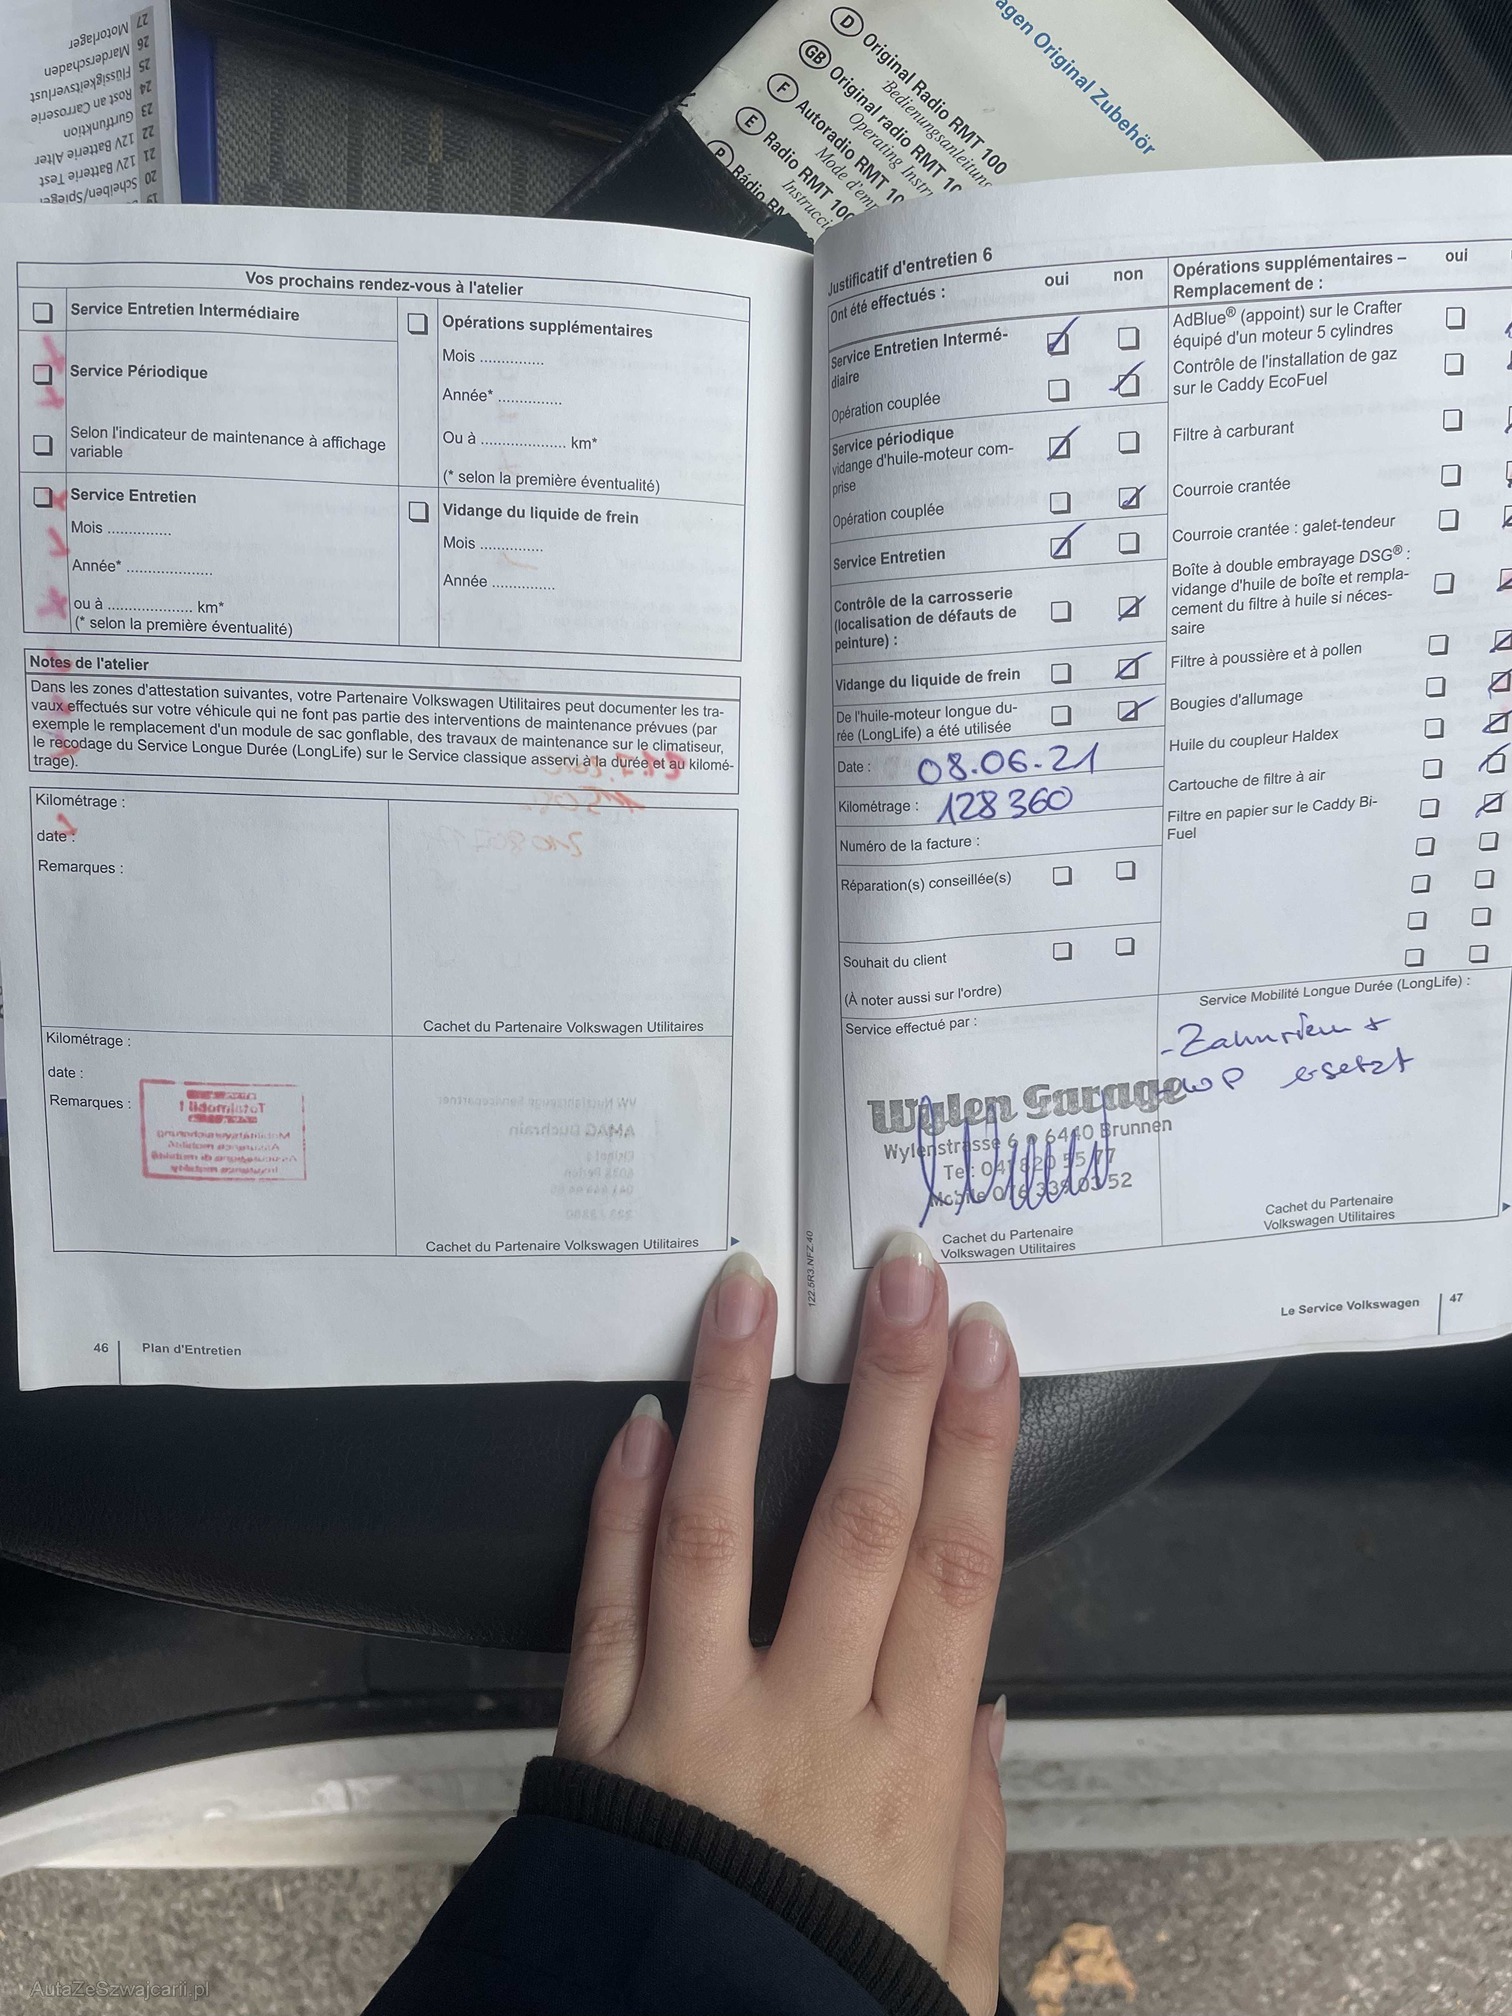 27 Motorlager
26 Marderschaden
25 Flüssigkeitsverlust
24 Rost an Carroserie
23 Gurtfunktion
22 12V Batterie Alter
21 12V Batterie Test
20 Scheiben/Spiegel
19
agen Original Zubehör
D Original Radio RMT 100
Bedienungsanleitung
GB Original radio RMT 10
Operating Instr
F Autoradio RMT 10
Mode d'emp
E Radio RMT 100
Instrucci
P Rádio RM
Vos prochains rendez-vous à l'atelier
Service Entretien Intermédiaire
Service Périodique
Selon l'indicateur de maintenance à affichage
variable
Opérations supplémentaires
Mois ...............
Année* ...............
Ou à .................... km*
(* selon la première éventualité)
Service Entretien
Mois ...............
Année* ....................
ou à .................... km*
(* selon la première éventualité)
Vidange du liquide de frein
Mois ...............
Année ...............
Notes de l'atelier
Dans les zones d'attestation suivantes, votre Partenaire Volkswagen Utilitaires peut documenter les tra-
vaux effectués sur votre véhicule qui ne font pas partie des interventions de maintenance prévues (par
exemple le remplacement d'un module de sac gonflable, des travaux de maintenance sur le climatiseur,
le recodage du Service Longue Durée (LongLife) sur le Service classique asservi à la durée et au kilomé-
trage).
Kilométrage :
date :
Remarques :
Cachet du Partenaire Volkswagen Utilitaires
Kilométrage :
date :
Remarques :
Totalmobil !
AMAG Buchrain
Cachet du Partenaire Volkswagen Utilitaires
46 Plan d'Entretien
Justificatif d'entretien 6
Ont été effectués : oui non
Service Entretien Intermé-
diaire
Opération couplée
Service périodique
vidange d'huile-moteur com-
prise
Opération couplée
Service Entretien
Contrôle de la carrosserie
(localisation de défauts de
peinture) :
Vidange du liquide de frein
De l'huile-moteur longue du-
rée (LongLife) a été utilisée
Date : 08.06.21
Kilométrage : 128 360
Numéro de la facture :
Réparation(s) conseillée(s)
Souhait du client
(À noter aussi sur l'ordre)
Service effectué par :
Wylen Garage
Wylenstrasse 6 6440 Brunnen
Tel: 041 820 55 77
Mobile 076 339 03 52
Cachet du Partenaire
Volkswagen Utilitaires
Opérations supplémentaires – oui
Remplacement de :
AdBlue® (appoint) sur le Crafter
équipé d'un moteur 5 cylindres
Contrôle de l'installation de gaz
sur le Caddy EcoFuel
Filtre à carburant
Courroie crantée
Courroie crantée : galet-tendeur
Boîte à double embrayage DSG® :
vidange d'huile de boîte et rempla-
cement du filtre à huile si néces-
saire
Filtre à poussière et à pollen
Bougies d'allumage
Huile du coupleur Haldex
Cartouche de filtre à air
Filtre en papier sur le Caddy Bi-
Fuel
Service Mobilité Longue Durée (LongLife) :
- Zahnriem +
WP ersetzt
Cachet du Partenaire
Volkswagen Utilitaires
122.5R3.NFZ.40
Le Service Volkswagen 47
AutaZeSzwajcarii.pl